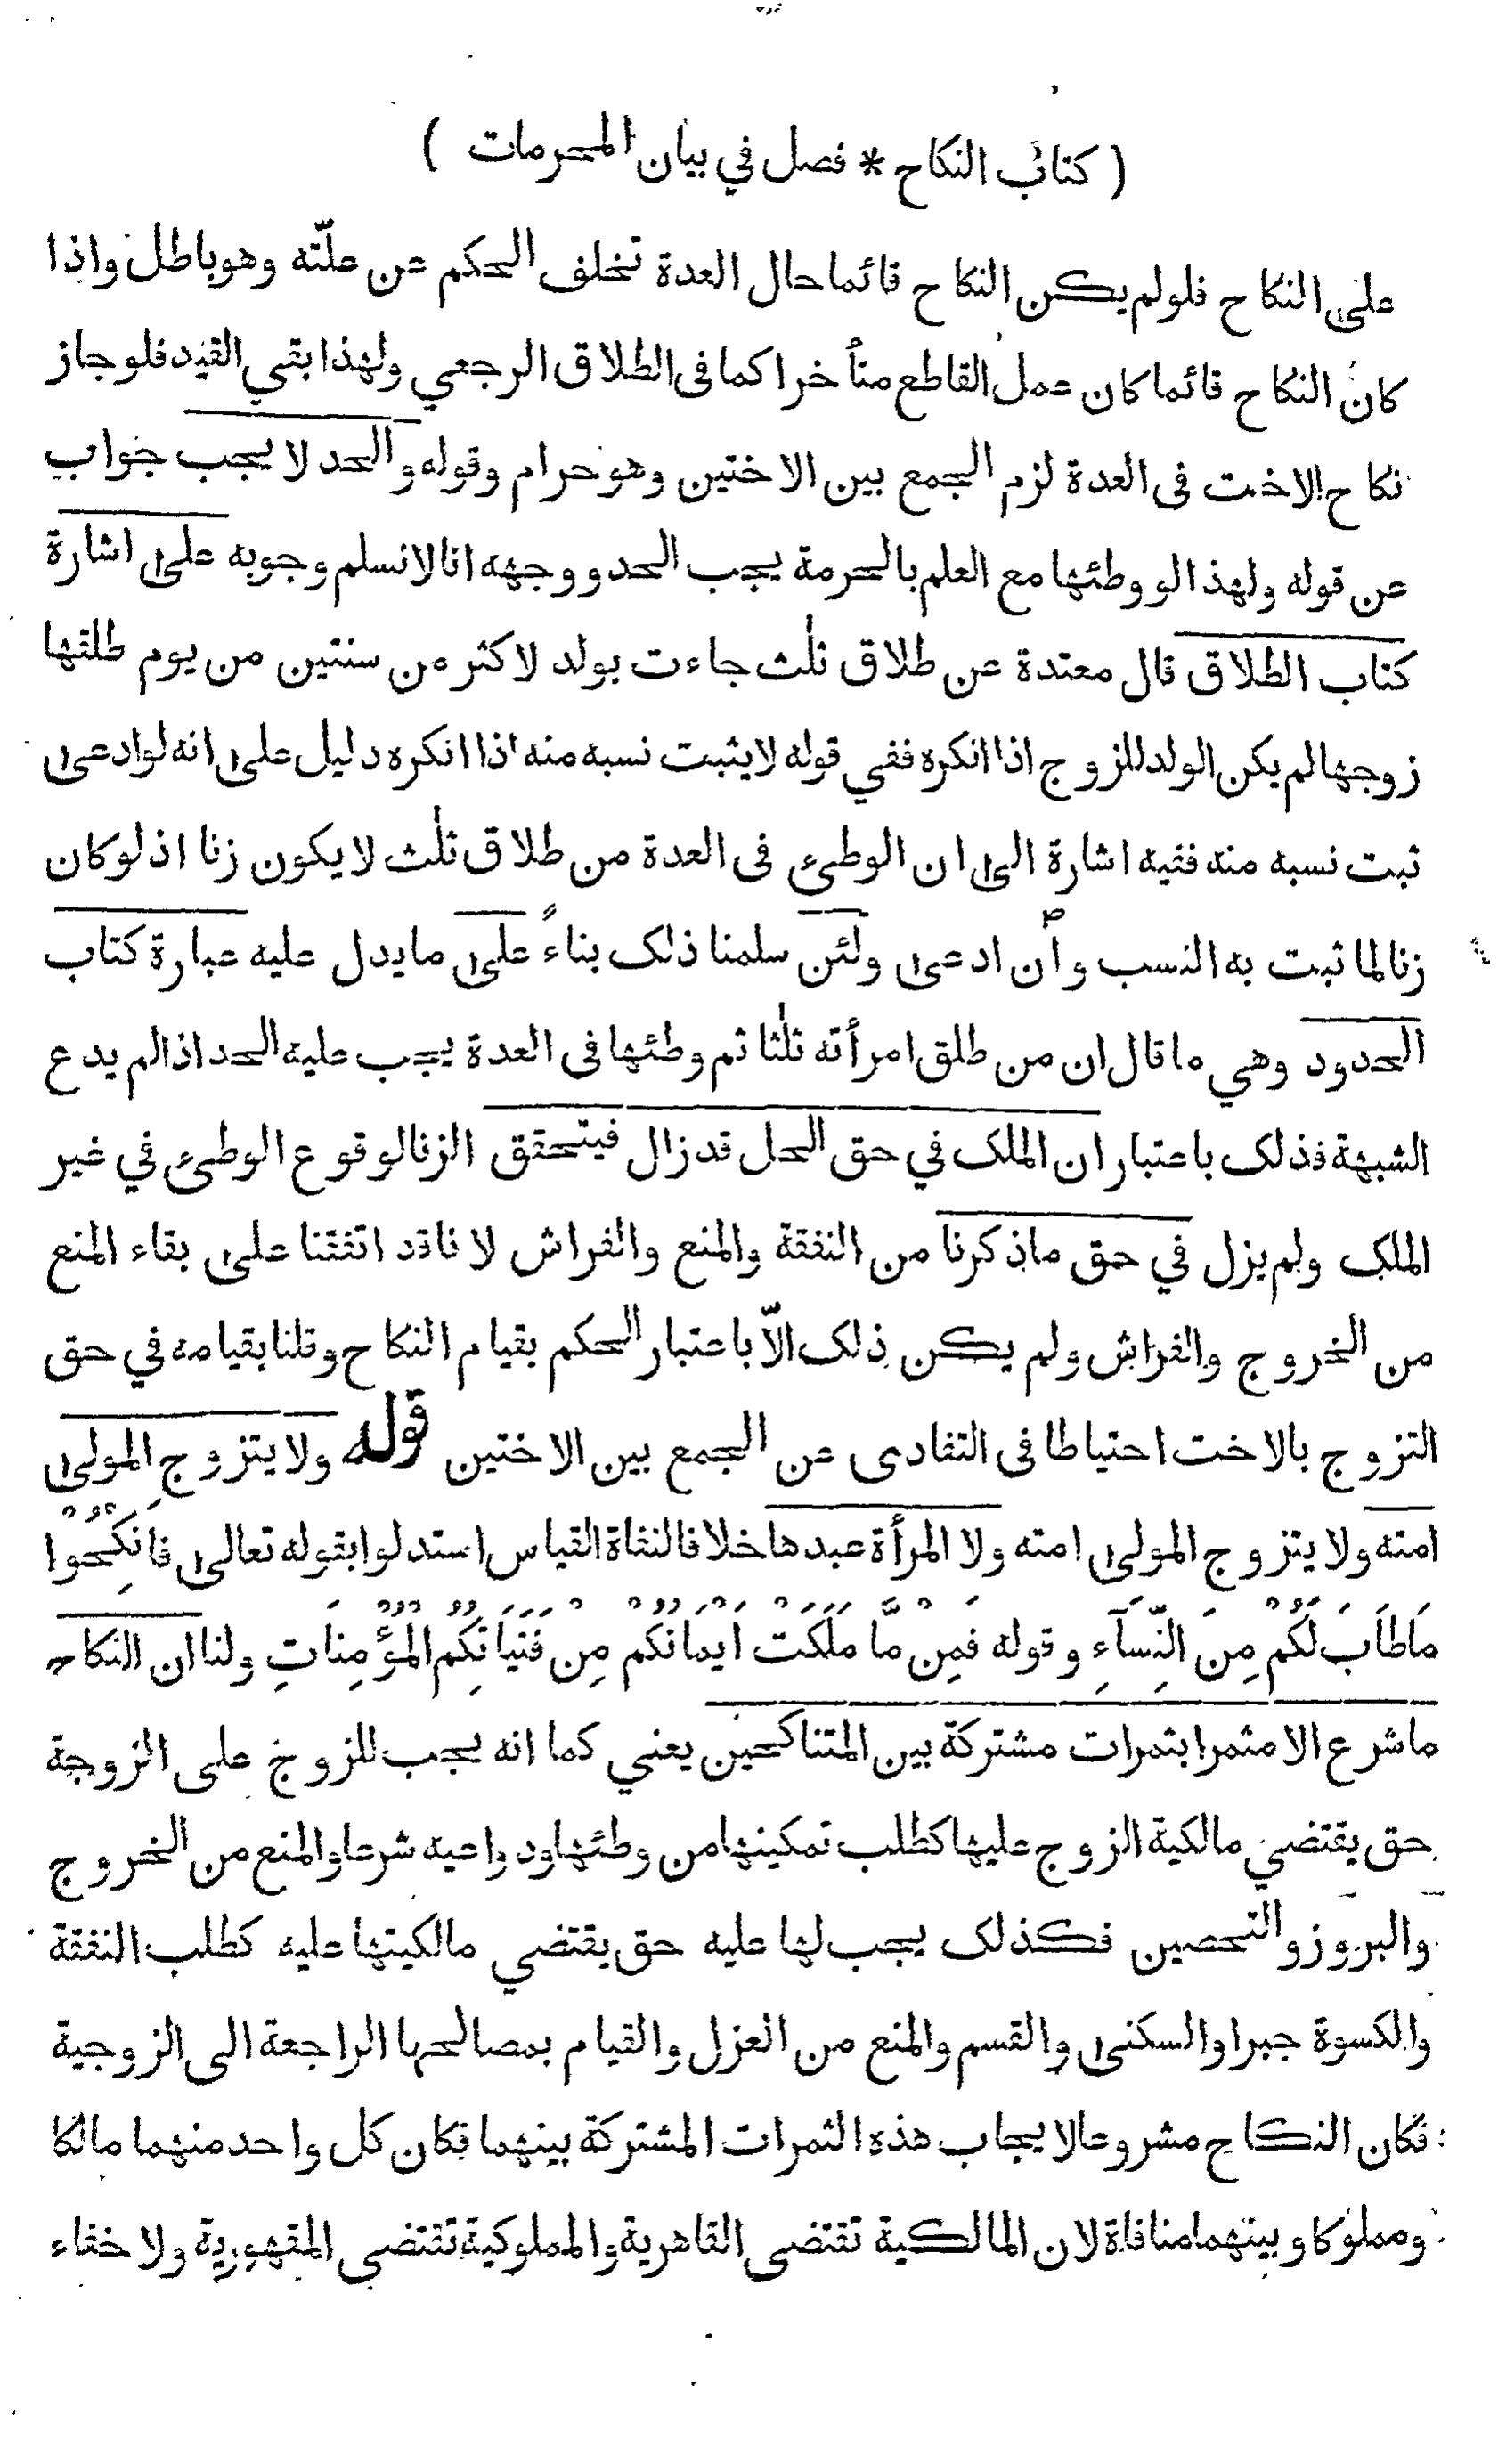 ( كتاب النكاح * فصل في بيان المحرمات )
على النكاح فلولم يكن النكاح قائما حال العدة تخلف الحكم عن علّته وهو باطل واذا
كان النكاح قائما كان عمل القاطع متأخرا كما فى الطلاق الرجعي ولهذا بقي القيد فلو جاز
نكاح الاخت فى العدة لزم الجمع بين الاختين وهو حرام وقوله والحد لا يجب جواب
عن قوله ولهذا لو وطئها مع العلم بالحرمة يجب الحد ووجهه انا لا نسلم وجوبه على اشارة
كتاب الطلاق قال معتدة عن طلاق ثلث جاءت بولد لاكثر من سنتين من يوم طلقها
زوجها لم يكن الولد للزوج اذا انكره ففي قوله لا يثبت نسبه منه اذا انكره دليل على انه لو ادعى
ثبت نسبه منه ففيه اشارة الى ان الوطئ فى العدة من طلاق ثلث لا يكون زنا اذ لو كان
زنا لما ثبت به النسب وأن ادعى ولئن سلمنا ذلك بناءً على ما يدل عليه عبارة كتاب
الحدود وهي ما قال ان من طلق امرأته ثلثا ثم وطئها فى العدة يجب عليه الحد اذا لم يدع
الشبهة فذلك باعتبار ان الملك في حق الحل قد زال فيتحقق الزنا لوقوع الوطئ في غير
الملك ولم يزل في حق ما ذكرنا من النفقة والمنع والفراش لانا قد اتفقنا على بقاء المنع
من الخروج والفراش ولم يكن ذلك الّا باعتبار الحكم بقيام النكاح وقلنا بقيامه في حق
التزوج بالاخت احتياطا فى التفادى عن الجمع بين الاختين قوله ولا يتزوج المولى
امته ولا يتزوج المولى امته ولا المرأة عبدها خلافا لنفاة القياس استدلوا بقوله تعالى فَانْكِحُوْا
مَاطَابَ لَكُمْ مِنَ النِّسَآءِ وقوله فَمِنْ مَّا مَلَكَتْ اَيْمَانُكُمْ مِنْ فَتَيَاتِكُمُ الْمُؤْمِنَاتِ ولنا ان النكاح
ما شرع الا مثمرا بثمرات مشتركة بين المتناكحين يعني كما انه يجب للزوج على الزوجة
حق يقتضي مالكية الزوج عليها كطلب تمكينها من وطئها ودواعيه شرعا والمنع من الخروج
والبروز والتحصين فكذلك يجب لها عليه حق يقتضي مالكيتها عليه كطلب النفقة
والكسوة جبرا والسكنى والقسم والمنع من العزل والقيام بمصالحها الراجعة الى الزوجية
فكان النكاح مشروعا لايجاب هذه الثمرات المشتركة بينهما فكان كل واحد منهما مالكا
ومملوكا وبينهما منافاة لان المالكية تقتضى القاهرية والمملوكية تقتضى المقهورية ولا خفاء